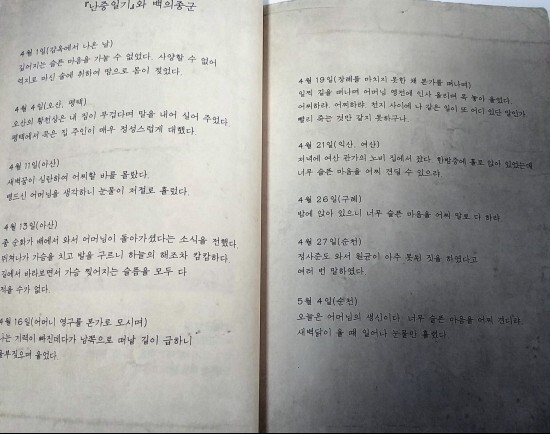 『난중일기』와 백의종군
4월 1일(감옥에서 나온 날)
깊어지는 슬픈 마음을 가눌 수 없었다. 사양할 수 없어
억지로 마신 술에 취하여 땀으로 몸이 젖었다.
4월 4일(오산, 평택)
오산의 황천상은 내 짐이 무겁다며 말을 내어 실어 주었다.
평택에서 묵은 집 주인이 매우 정성스럽게 대했다.
4월 11일(아산)
새벽꿈이 심란하여 어찌할 바를 몰랐다.
병드신 어머님을 생각하니 눈물이 저절로 흘렀다.
4월 13일(아산)
종 순화가 배에서 와서 어머님이 돌아가셨다는 소식을 전했다.
뛰쳐나가 가슴을 치고 발을 구르니 하늘의 해조차 캄캄하다.
길에서 바라보면서 가슴 찢어지는 슬픔을 모두 다
적을 수가 없다.
4월 16일(어머니 영구를 본가로 모시며)
나는 기력이 빠진데다가 남쪽으로 떠날 길이 급하니
울부짖으며 울었다.
4월 19일(장례를 마치지 못한 채 본가를 떠나며)
일찍 길을 떠나며 어머님 영전에 인사 올리며 목 놓아 울었다.
어찌하랴. 어찌하랴. 천지 사이에 나 같은 일이 또 어디 있단 말인가.
빨리 죽는 것만 같지 못하구나.
4월 21일(익산, 여산)
저녁에 여산 관가의 노비 집에서 잤다. 한밤중에 홀로 앉아 있었는데
너무 슬픈 마음을 어찌 견딜 수 있으랴.
4월 26일(구례)
밤에 앉아 있으니 너무 슬픈 마음을 어찌 말로 다 하랴.
4월 27일(순천)
정사준도 와서 원균이 아주 못된 짓을 하였다고
여러 번 말하였다.
5월 4일(순천)
오늘은 어머님의 생신이다. 너무 슬픈 마음을 어찌 견디랴.
새벽닭이 울 때 일어나 눈물만 흘렸다.